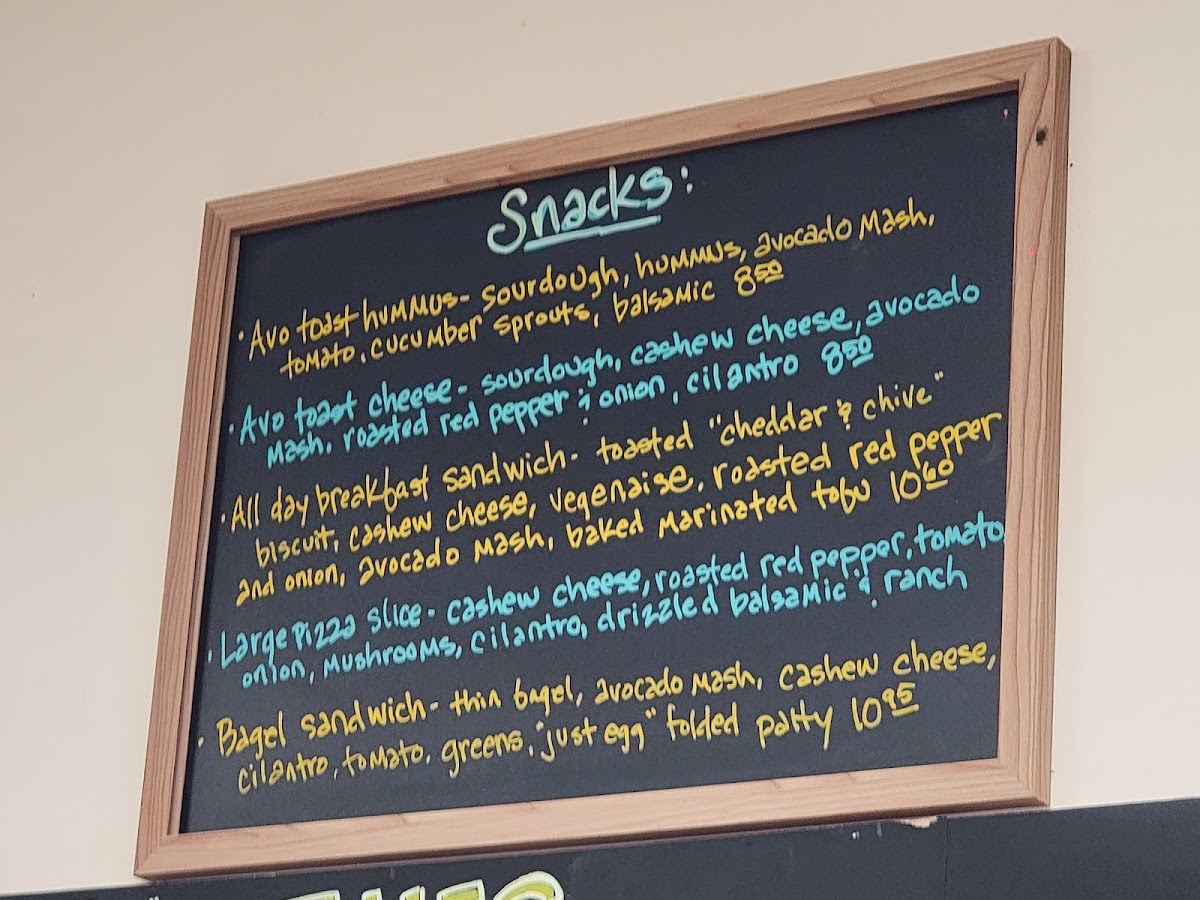 Snacks:
· Avo toast hummus- sourdough, hummus, avocado mash,
tomato, cucumber sprouts, balsamic 8 50
· Avo toast cheese - sourdough, cashew cheese, avocado
mash, roasted red pepper & onion, cilantro 8 50
· All day breakfast sandwich- toasted "cheddar & chive"
biscuit, cashew cheese, vegenaise, roasted red pepper
and onion, avocado mash, baked marinated tofu 10 60
· Large pizza slice - cashew cheese, roasted red pepper, tomato
onion, mushrooms, cilantro, drizzled balsamic & ranch
· Bagel sandwich- thin bagel, avocado mash, cashew cheese,
cilantro, tomato, greens, "just egg" folded patty 10 95